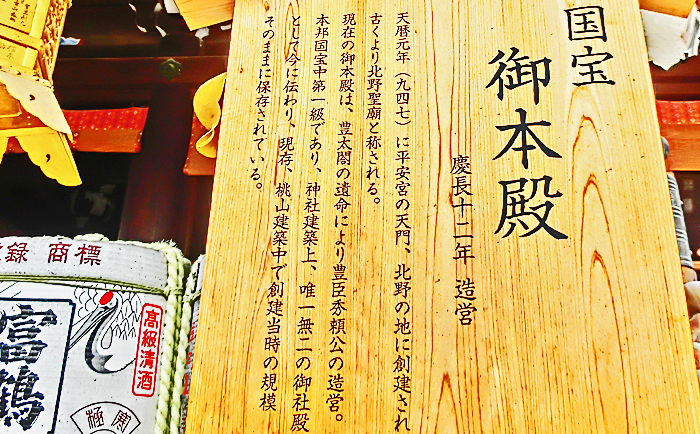 国宝
御本殿
慶長十二年 造営
天暦元年（九四七）に平安宮の天門、北野の地に創建され
古くより北野聖廟と称される。
現在の御本殿は、豊太閤の遺命により豊臣秀頼公の造営。
本邦国宝中第一級であり、神社建築上、唯一無二の御社殿
として今に伝わり、現存、桃山建築中で創建当時の規模
そのままに保存されている。
録商標
高級清酒
富鶴
極寒